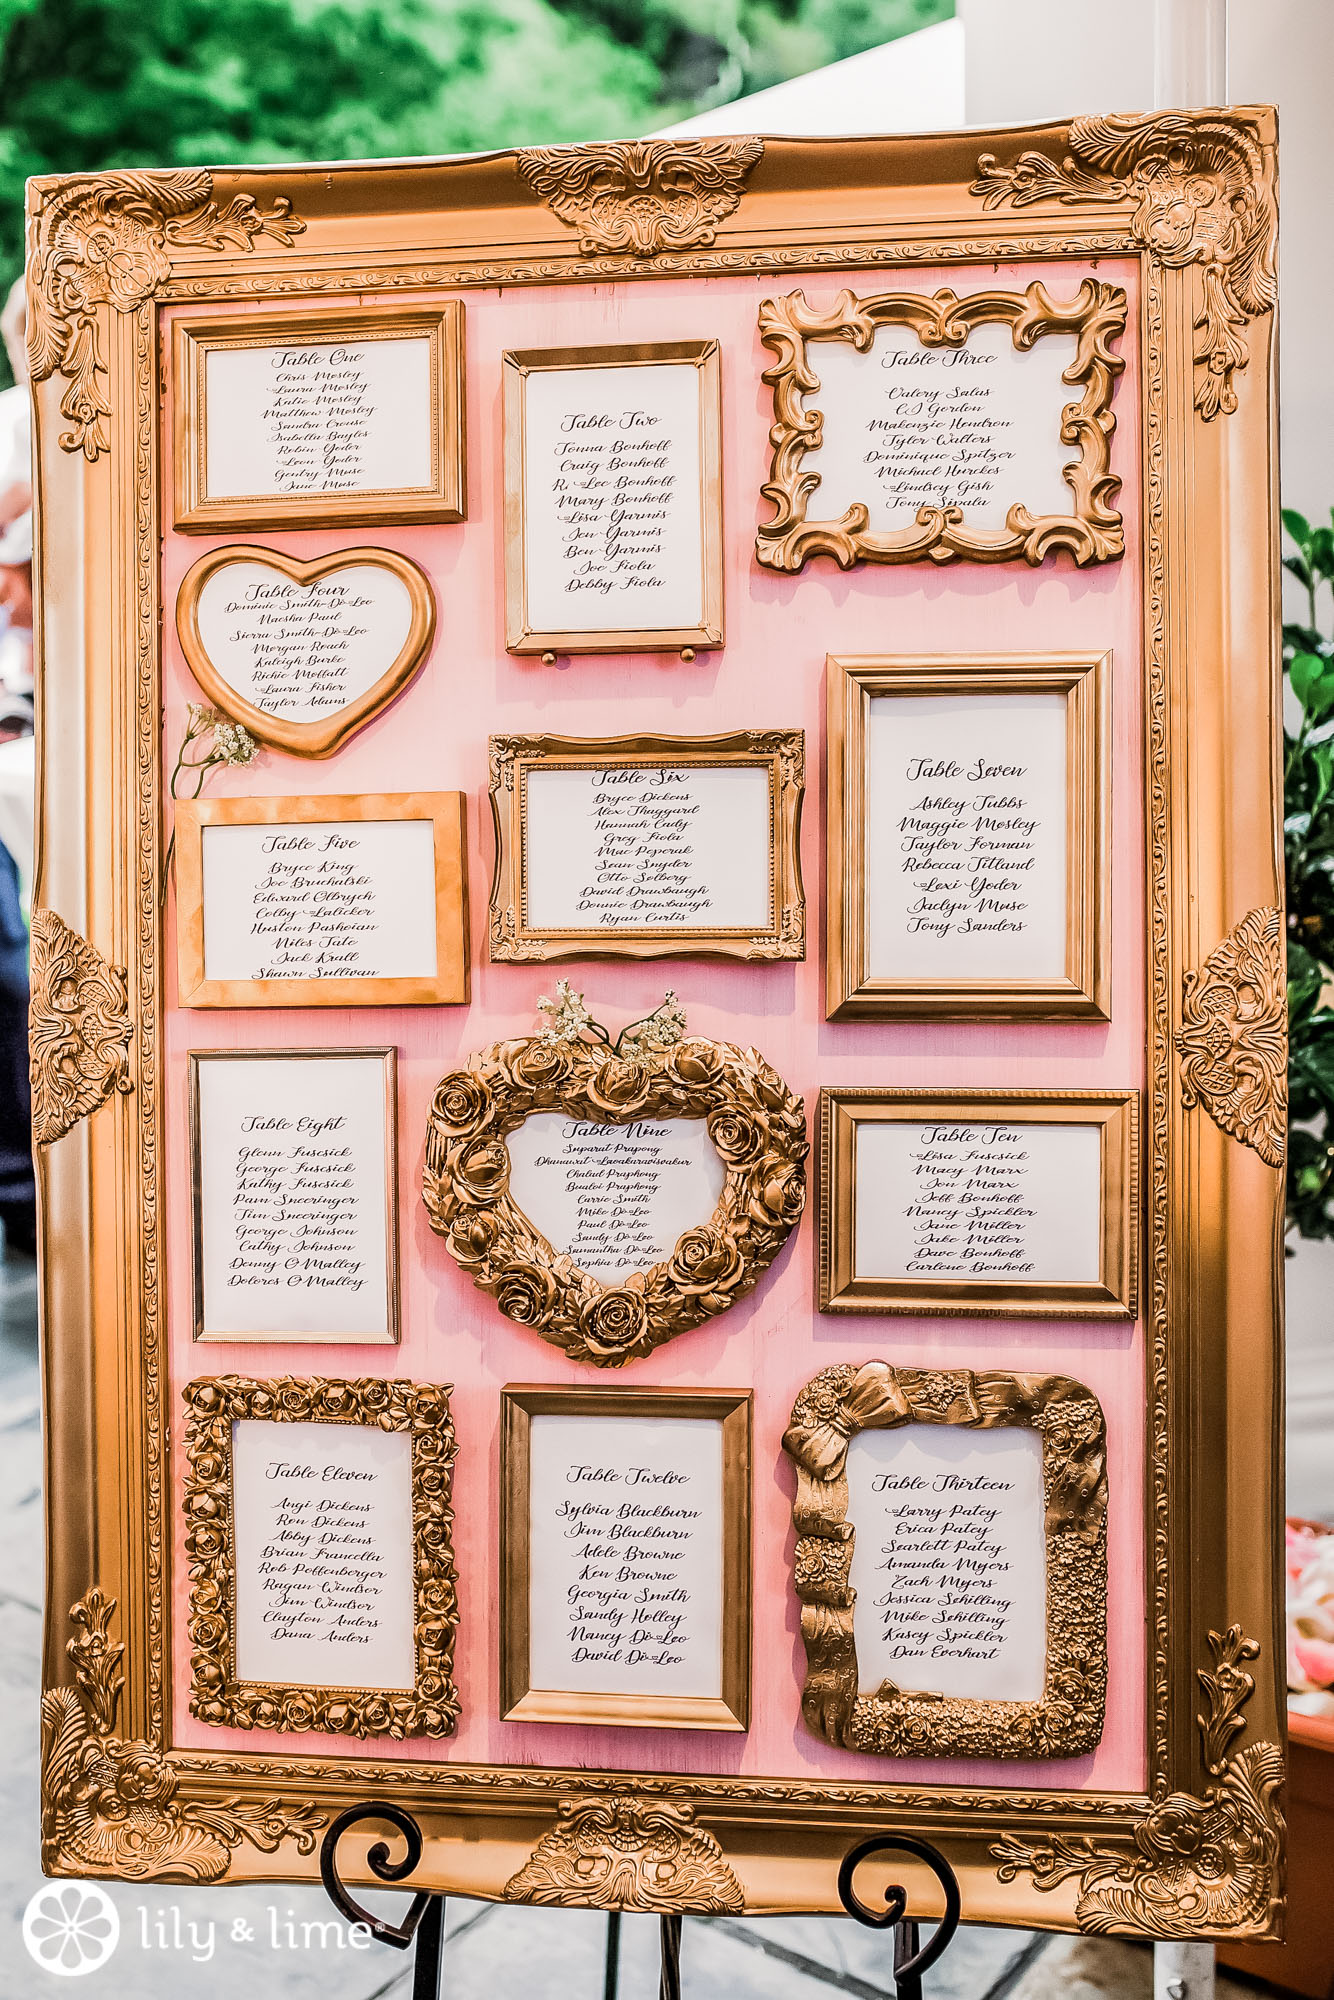 Table One
Chris Mosley
Laura Mosley
Katie Mosley
Matthew Mosley
Sandra Crouse
Isabella Bayles
Robin Yoder
Leon Yoder
Gentry Muse
Jane Muse
Table Two
Tonna Bonhoff
Craig Bonhoff
Lee Bonhoff
Mary Bonhoff
Lisa Yarmis
Jon Yarmis
Ben Yarmis
Joe Fiola
Debby Fiola
Table Three
Valery Salas
CJ Gordon
Makenzie Hendron
Tyler Walters
Dominique Spitzer
Michael Hurckes
Lindsey Gish
Tony Sipala
Table Four
Dominic Smith-Di-Leo
Macsha Paul
Sierra Smith-Di-Leo
Morgan Roach
Kaleigh Burke
Richie Moffatt
Laura Fisher
Taylor Adams
Table Five
Bryce King
Joe Bruchalski
Edward Olbrych
Colby Lalicker
Huston Pashoian
Niles Tate
Jack Krall
Shawn Sullivan
Table Six
Bryce Dickens
Alex Thaggard
Hannah Cady
Greg Fiola
Mac Peperak
Sean Snyder
Otto Solberg
David Drawbaugh
Donnie Drawbaugh
Ryan Curtis
Table Seven
Ashley Tubbs
Maggie Mosley
Taylor Forman
Rebecca Titland
Lexi Yoder
Jaclyn Muse
Tony Sanders
Table Eight
Glenn Fuscsick
George Fuscsick
Kathy Fuscsick
Pam Sneeringer
Tim Sneeringer
George Johnson
Cathy Johnson
Denny O'Malley
Dolores O'Malley
Table Nine
Suparat Prapong
Dhanawat Laoakaravisvakur
Chalud Praphong
Bualoi Praphong
Carrie Smith
Mike Di-Leo
Paul Di-Leo
Sandy Di-Leo
Samantha Di-Leo
Sophia Di-Leo
Table Ten
Lisa Fuscsick
Macy Marx
Jon Marx
Jeff Bonhoff
Nancy Spickler
Jane Miller
Jake Miller
Dave Bonhoff
Carlene Bonhoff
Table Eleven
Angi Dickens
Ron Dickens
Abby Dickens
Brian Francella
Rob Poffenberger
Ragan Windsor
Jim Windsor
Clayton Anders
Dana Anders
Table Twelve
Sylvia Blackburn
Jim Blackburn
Adele Browne
Ken Browne
Georgia Smith
Sandy Holley
Nancy Di-Leo
David Di-Leo
Table Thirteen
Larry Patey
Erica Patey
Scarlett Patey
Amanda Myers
Zach Myers
Jessica Schilling
Mike Schilling
Kasey Spickler
Dan Everhart
lily & lime®